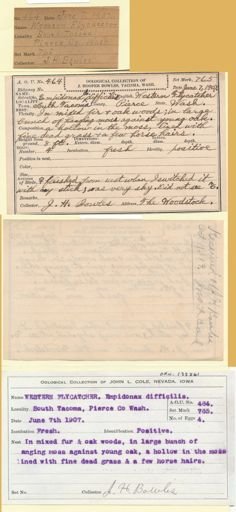 464 Date June 7, 1907
Western Flycatcher
Locality South Tacoma
Pierce Co. Wash.
J.H. Bowles
A. O. U. No. 464 OOLOGICAL COLLECTION OF J. HOOPER BOWLES, TACOMA, WASH. Set Mark 765
Date June 7, 1907
Western Flycatcher
South Tacoma, Pierce Wash.
In mixed fir & oak woods, in large
bunch of hanging moss against young oak.
a hollow in the moss, lined with
fine dead grass & a few horse hairs.
Number 4 Incubation, fresh Identity, positive
Position in nest,
Color,
I flushed from nest when I switched it
with my stick; was very shy. Did not see
Collector J. H. Bowles The Woodstock.
OOLOGICAL COLLECTION OF JOHN L. COLE, NEVADA, IOWA
Name WESTERN FLYCATCHER. Empidonax difficilis. A.O.U. 464.
Locality South Tacoma, Pierce Co Wash. Set Mark 765.
Date June 7th 1907. No. of Eggs 4.
Incubation Fresh. Identification Positive.
Nest In mixed fur & oak woods, in large bunch of
anging moss against young oak, a hollow in the moss
lined with fine dead grass & a few horse hairs.
Set No. Collector J. H. Bowles